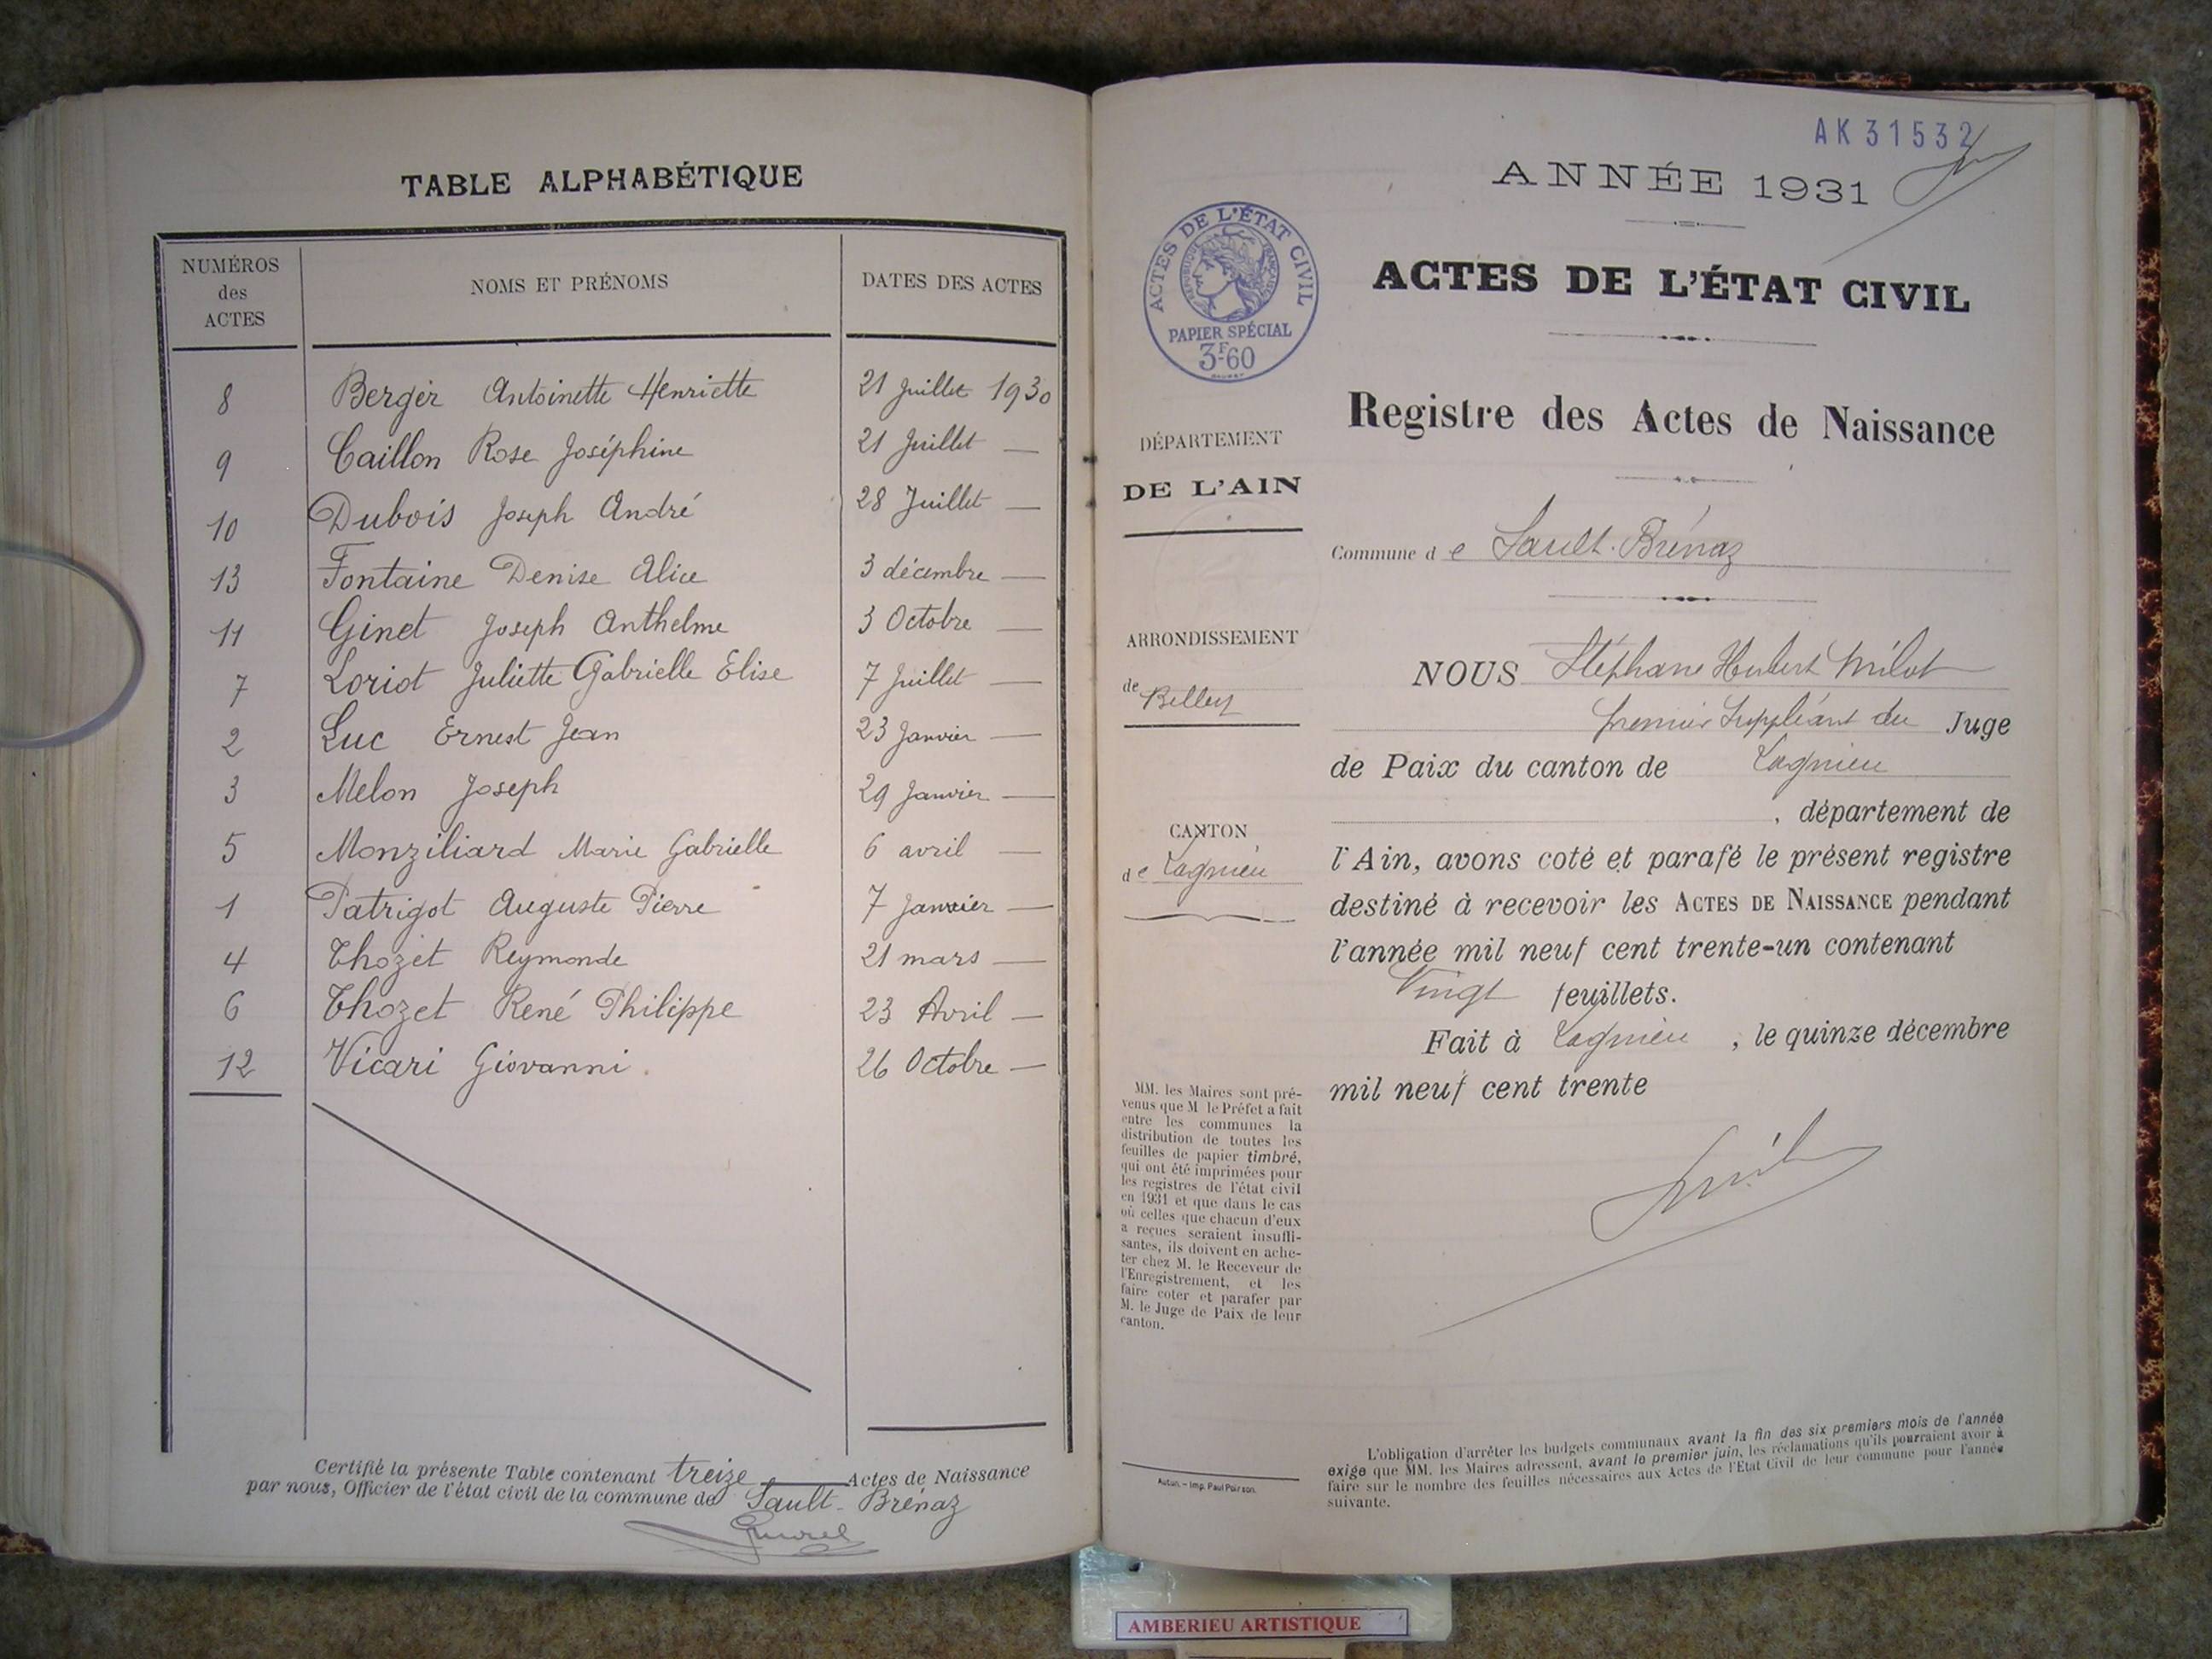 TABLE ALPHABÉTIQUE
NUMÉROS des ACTES
NOMS ET PRÉNOMS
DATES DES ACTES
8 Berger Antoinette Henriette 21 Juillet 1930
9 Caillon Rose Joséphine 21 Juillet —
10 Dubois Joseph André 28 Juillet —
13 Fontaine Denise Alice 3 décembre —
11 Ginet Joseph Anthelme 3 Octobre —
7 Loriot Juliette Gabrielle Elise 7 Juillet —
2 Luc Ernest Jean 23 Janvier —
3 Melon Joseph 29 Janvier —
5 Monziliard Marie Gabrielle 6 avril —
1 Patrigot Auguste Pierre 7 Janvier —
4 Thozet Reymonde 21 mars —
6 Thozet René Philippe 23 Avril —
12 Vicari Giovanni. 26 Octobre —
Certifié la présente Table contenant treize Actes de Naissance
par nous, Officier de l'état civil de la commune de Sault-Brénaz
AK31532
ANNÉE 1931
ACTES DE L'ÉTAT CIVIL
RÉPUBLIQUE FRANÇAISE
PAPIER SPÉCIAL
3F60
ACTES DE L'ÉTAT CIVIL
Registre des Actes de Naissance
DÉPARTEMENT
DE L'AIN
Commune de Sault-Brénaz
ARRONDISSEMENT
de Belley
CANTON
de Lagnieu
NOUS Stéphane Hubert Milot
premier Suppléant du Juge
de Paix du canton de Lagnieu
, département de
l'Ain, avons coté et parafé le présent registre
destiné à recevoir les ACTES DE NAISSANCE pendant
l'année mil neuf cent trente-un contenant
Vingt feuillets.
Fait à Lagnieu , le quinze décembre
mil neuf cent trente
MM. les Maires sont pré-
venus que M le Préfet a fait
entre les communes la
distribution de toutes les
feuilles de papier timbré,
qui ont été imprimées pour
les registres de l'état civil
en 1931 et que dans le cas
où celles que chacun d'eux
a reçues seraient insuffi-
santes, ils doivent en ache-
ter chez M. le Receveur de
l'Enregistrement, et les
faire coter et parafer par
M. le Juge de Paix de leur
canton.
Autun. – Imp. Paul Poirson.
L'obligation d'arrêter les budgets communaux avant la fin des six premiers mois de l'année
exige que MM. les Maires adressent, avant le premier juin, les réclamations qu'ils pourraient avoir à
faire sur le nombre des feuilles nécessaires aux Actes de l'Etat Civil de leur commune pour l'année
suivante.
AMBERIEU ARTISTIQUE